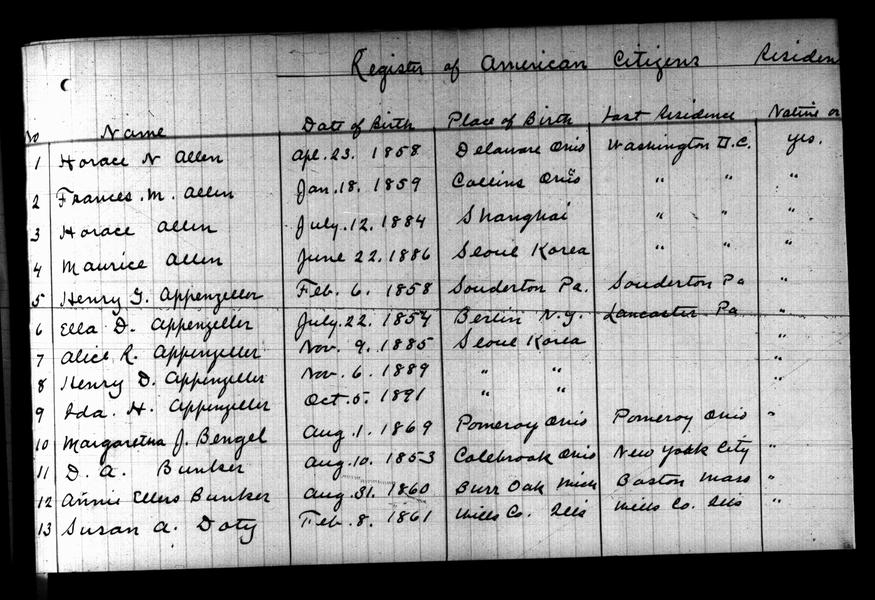 Register of American Citizens Residen
No Name Date of Birth Place of Birth Last Residence Native or
1 Horace N Allen Apl. 23. 1858 Delaware Ohio Washington D.C. yes.
2 Frances. M. Allen Jan. 18. 1859 Collins Ohio " " "
3 Horace Allen July. 12. 1884 Shanghai " " "
4 Maurice Allen June 22. 1886 Seoul Korea " " "
5 Henry G. Appenzeller Feb. 6. 1858 Souderton Pa. Souderton Pa "
6 Ella D. Appenzeller July. 22. 1854 Berlin N.Y. Lancaster Pa "
7 Alice R. Appenzeller Nov. 9. 1885 Seoul Korea "
8 Henry D. Appenzeller Nov. 6. 1889 " " "
9 Ida. H. Appenzeller Oct. 5. 1891 " "
10 Margaretha J. Bengel Aug. 1. 1869 Pomeroy Ohio Pomeroy Ohio "
11 D. A. Bunker Aug. 10. 1853 Colebrook Ohio New York City "
12 Annie Ellers Bunker Aug. 31. 1860 Burr Oak Mich Boston Mass "
13 Susan A. Doty Feb. 8. 1861 Mills Co. Ills Mills Co. Ills "